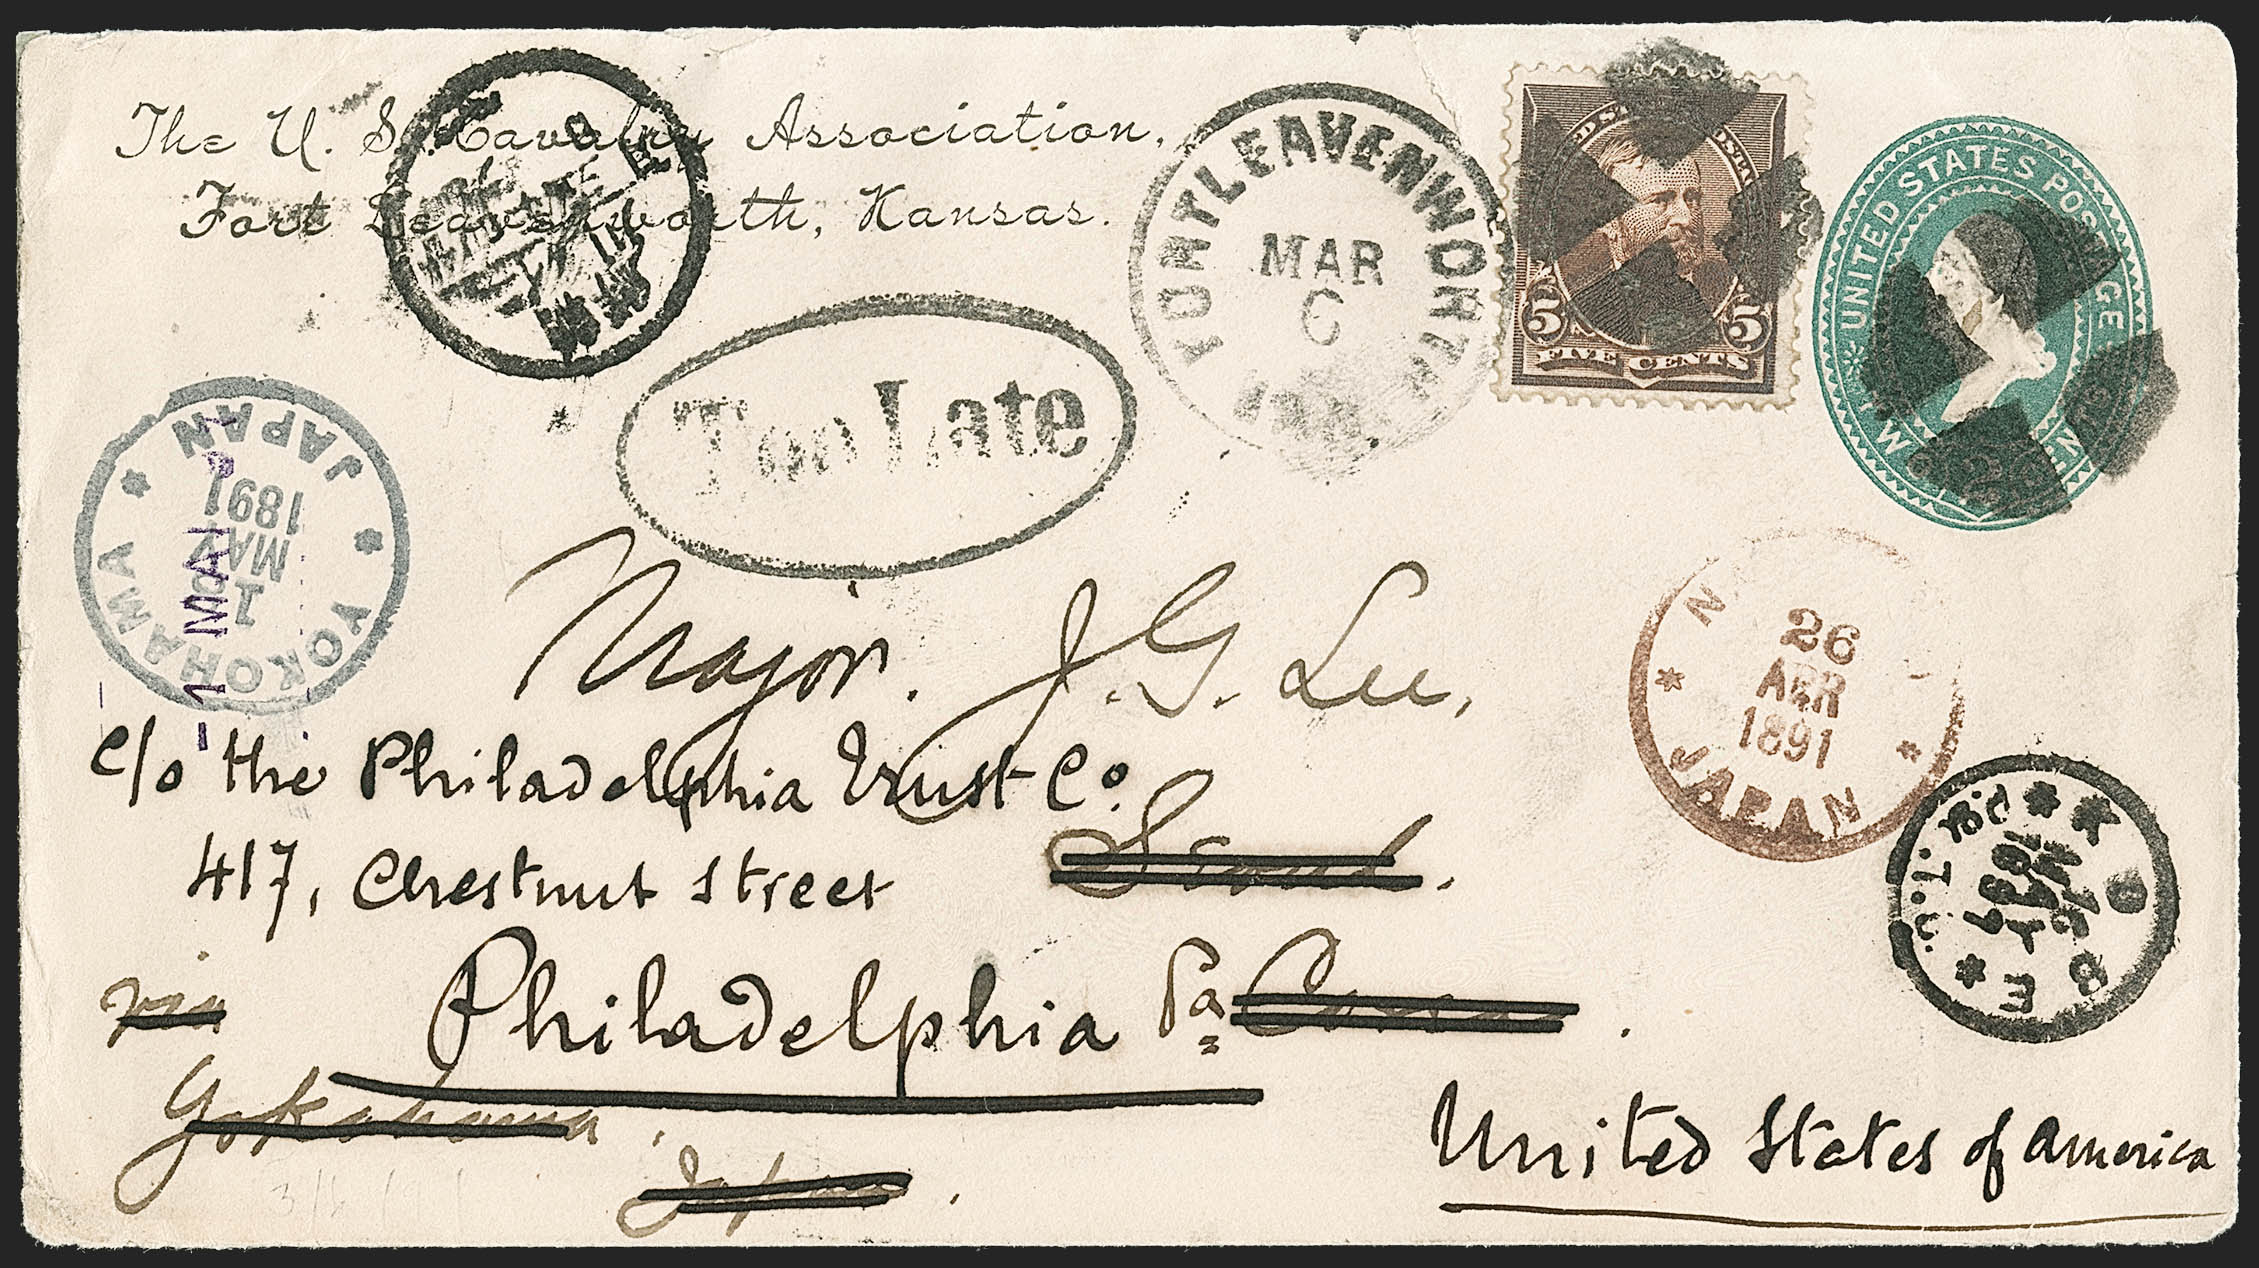 The U. S. Cavalry Association,
Fort Leavenworth, Kansas.
FORT LEAVENWORTH
MAR
6
UNITED STATES POSTAGE
FIVE CENTS
5 5
Too Late
YOKOHAMA
1
MAY
1891
JAPAN
-1 MAI
Major. J. G. Lee,
c/o the Philadelphia Trust Co.
417, Chestnut Street
Seoul.
via Philadelphia Pa Corea.
Yokohama.
Japan.
United States of America
26
APR
1891
JAPAN
KOBE
I.J.P.A.